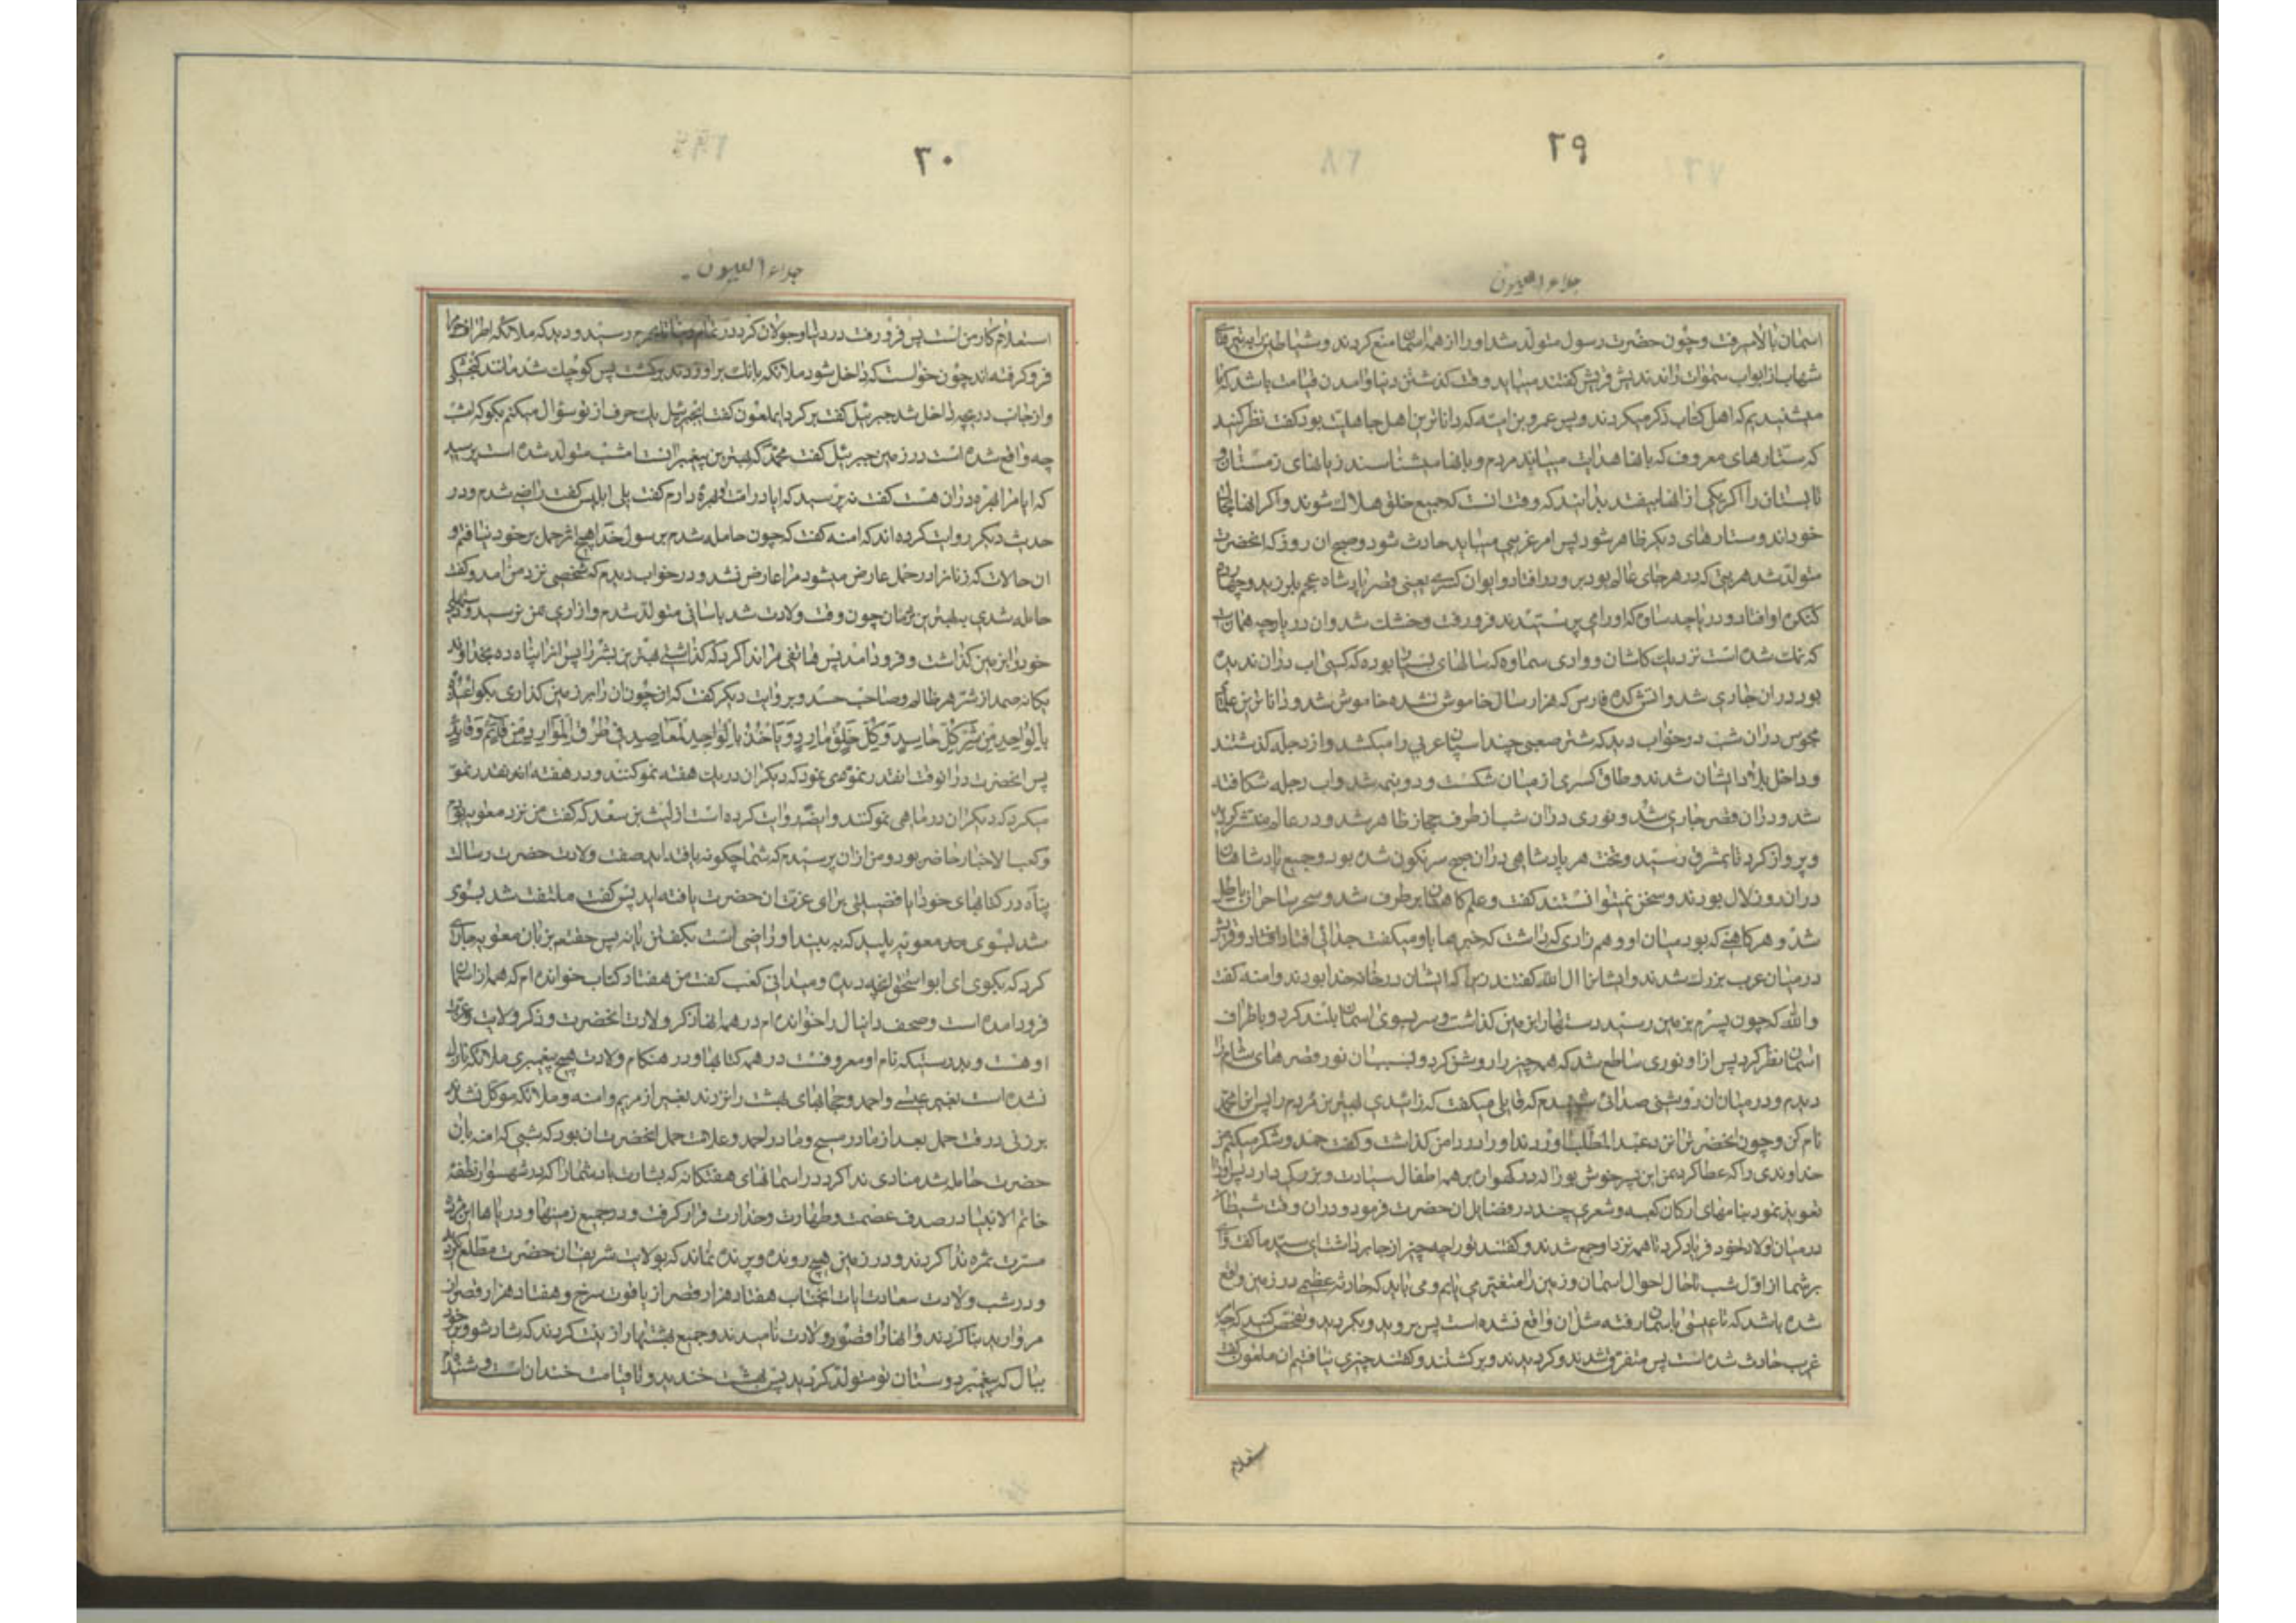 ۲۹
جلاء العیون
اسمان بالا میرفت و چون حضرت رسول متولد شد او را از همه اسمانها منع کردند و شیاطین را بتیرهای
شهاب از ابواب سموات راندند پس قریش گفتند میباید وقت گذشتن دنیا و امدن قیامت باشد که ما
میشنیدیم که اهل کتاب ذکر میکردند و پس عمرو بن امیه که داناترین اهل جاهلیت بود گفت نظر کنید
که ستارهای معروف که بانها هدایت مییابند مردم و بانها میشناسند زمانهای زمستان و
تابستان را اگر یکی از انها بیفتد بدانید که وقت انست که جمیع خلق هلاک شوند و اگر انها بحال
خودند و ستارهای دیگر ظاهر شود پس امر غریبی میباید حادث شود و صبح ان روز که انحضرت
متولد شد هر بتی که در هر جای عالم بود برو در افتاد و ایوان کسری یعنی قصر پادشاه عجم بلرزید و چهارده
کنکره او افتاد و دریاچه ساوه که او را می پرستیدند فرو رفت و خشک شد و ان دریاچه همان است
که نمک شده است نزدیک کاشان و وادی سماوه که سالهای بود که کسی اب دران ندیده
بود دران جاری شد و اتش کده فارس که هزار سال خاموش نشده خاموش شد و داناترین علمای
مجوس دران شب در خواب دید که شتر صعبی چند اسپان عربی را میکشد و از دجله گذشتند
و داخل بلاد ایشان شدند و طاق کسری از میان شکست و دو نیم شد و اب دجله شکافته
شد و دران قصر جاری شد و نوری دران شب از طرف حجاز ظاهر شد و در عالم منتشر گردید
و پرواز کرد تا بمشرق رسید و تخت هر پادشاهی دران صبح سرنگون شده بود و جمیع پادشاهان
دران روز لال بودند و سخن نمیتوانستند گفت و علم کاهنان برطرف شد و سحر ساحران باطل
شد و هر کاهنی که بود میان او و همزادی که داشت که خبرها باو میگفت جدائی افتاد و قریش
در میان عرب بزرک شدند و ایشانرا ال الله گفتند زیرا که ایشان در خانه خدا بودند و امنه گفت
والله که چون پسرم بر زمین رسید دستها را بر زمین گذاشت و سر بسوی اسمان بلند کرد و باطراف
اسمان نظر کرد پس از او نوری ساطع شد که همه چیز را روشن کرد و بسبب ان نور قصرهای شام را
دیدم و در میان ان روشنی صدائی شنیدم که قایلی میکفت که زائیدی بهترین مردم را پس او را محمد
نام کن و چون انحضرت را نزد عبدالمطلب اوردند او را در دامن گذاشت و گفت حمد و شکر میکنم
خداوندی را که عطا کرد بمن این پسر خوش بو را که در گهواره بر همه اطفال سیادت و بزرگی دارد پس او را
تعویذ نمود بنامهای ارکان کعبه و شعری چند در فضایل ان حضرت فرمود و دران وقت شیطان
در میان اولاد خود فریاد کرد تا همه نزد او جمع شدند و گفتند تو را چه چیز از جا بر داشت ای سید ما گفت وای
بر شما از اول شب تا حال احوال اسمان و زمین را متغیر می یابم و می باید که حادثه عظیم در زمین واقع
شده باشد که تا عیسی باسمان رفته مثل ان واقع نشده است پس بروید و بگردید و تفحص کنید که چه امر
غریب حادث شده است پس متفرق شدند و گردیدند و برگشتند و گفتند چیزی نیافتیم ان ملعون گفت
ستعلام
۳۰
جلاء العیون
استعلام کار من است پس فرو رفت در دنیا و جولان کرد در تمام دنیا تا بحرم رسید و دید که ملائکه اطراف حرم را
فرو گرفته اند چون خواست که داخل شود ملائکه بانک بر او زدند برگشت پس کوچک شد مانند گنجشکی
و از جانب داخل شد جبرئیل گفت برگرد ای ملعون گفت ای جبرئیل یک حرف از تو سؤال میکنم بگو که امشب
چه واقع شده است در زمین جبرئیل گفت محمد که بهترین پیغمبرانست امشب متولد شده است پرسید
که ایا مرا بهره دران هست گفت نه پرسید که ایا در امت او بهره دارم گفت بلی ابلیس گفت راضی شدم و در
حدیث دیگر روایت کرده اند که امنه گفت که چون حامله شدم برسول خدا هیچ اثر حمل بر خود نیافتم و
ان حالات که زنانرا در حمل عارض میشود مرا عارض نشد و در خواب دیدم که شخصی نزد من امد و گفت
حامله شدی به بهترین مردمان چون وقت ولادت شد باسانی متولد شدم و ازاری بمن نرسید و دستهای
خود را بر زمین گذاشت و فرود امد پس هاتفی مرا ندا کرد که گذاشتی بهترین بشر را پس او را پناه ده بخداوند
یگانه صمد از شر هر ظالم و صاحب حسد و بروایت دیگر گفت که ان چون ان را بر زمین گذاری بگو اعیذه
بالواحد من شر کل حاسد و کل خلق مارد یاخذ بالمراصد فی طرق الموارد من قائم و قاعد
پس انحضرت در انوقت انقدر نمو می نمود که دیگران در یک هفته نمو کنند و در هفته انقدر نمو
میکرد که دیگران در ماهی نمو کنند و ایضا روایت کرده است از لیث بن سعد که گفت من نزد معویه بودم
و کعب الاحبار حاضر بود و من ازان پرسیدم که شما چگونه یافته اید صفت ولادت حضرت رسالت
پناه در کتابهای خود ایا فضیلتی برای عترت ان حضرت یافته اید پس گفت ملتفت شد بسوی
شد بسوی معویه پلید که به بیند او راضی است بگفتن یا نه پس حقتعالی بر زبان معویه جاری
کرد که بگوی ای ابو اسحق انچه دیده و میدانی کعب گفت من هفتاد و کتاب خوانده ام که همه از اسمان
فرود امده است و صحف دانیال را خوانده ام در همه انها ذکر ولادت انحضرت و ذکر ولادت عترت
او هست و بدرستیکه نام او معروفست در همه کتابها و در هنگام ولادت هیچ پیغمبری ملائکه نازل
نشده است بغیر عیسی و احمد و حجابهای بهشت را نزدند بغیر از مریم و امنه و ملائکه موکل نشدند
بر زنی در وقت حمل بعد از مادر مسیح و مادر احمد و علامت حمل انحضرت ان بود که شبی که امنه بان
حضرت حامله شد منادی ندا کرد در اسمانهای هفتگانه که بشارت باد شما را که در شهسوار نطفه
خاتم الانبیا در صدف عصمت و طهارت وخدارت قرار گرفت و در جمیع زمینها و دریاها این مژده
مسرت ثمره ندا کردند و در زمین هیچ رونده و پرنده نماند که بولادت شریف ان حضرت مطلع نگردد
و در شب ولادت سعادت ایات انجناب هفتاد هزار قصر از یاقوت سرخ و هفتاد هزار قصر از
مروارید بنا کردند و انها را قصور ولادت نامیدند و جمیع بهشتها را زینت کردند که شاد شو و بر خود
ببال که پیغمبر دوستان تو متولد گردید پس بهشت خندید و تا قیامت خندانست و شنیده ام